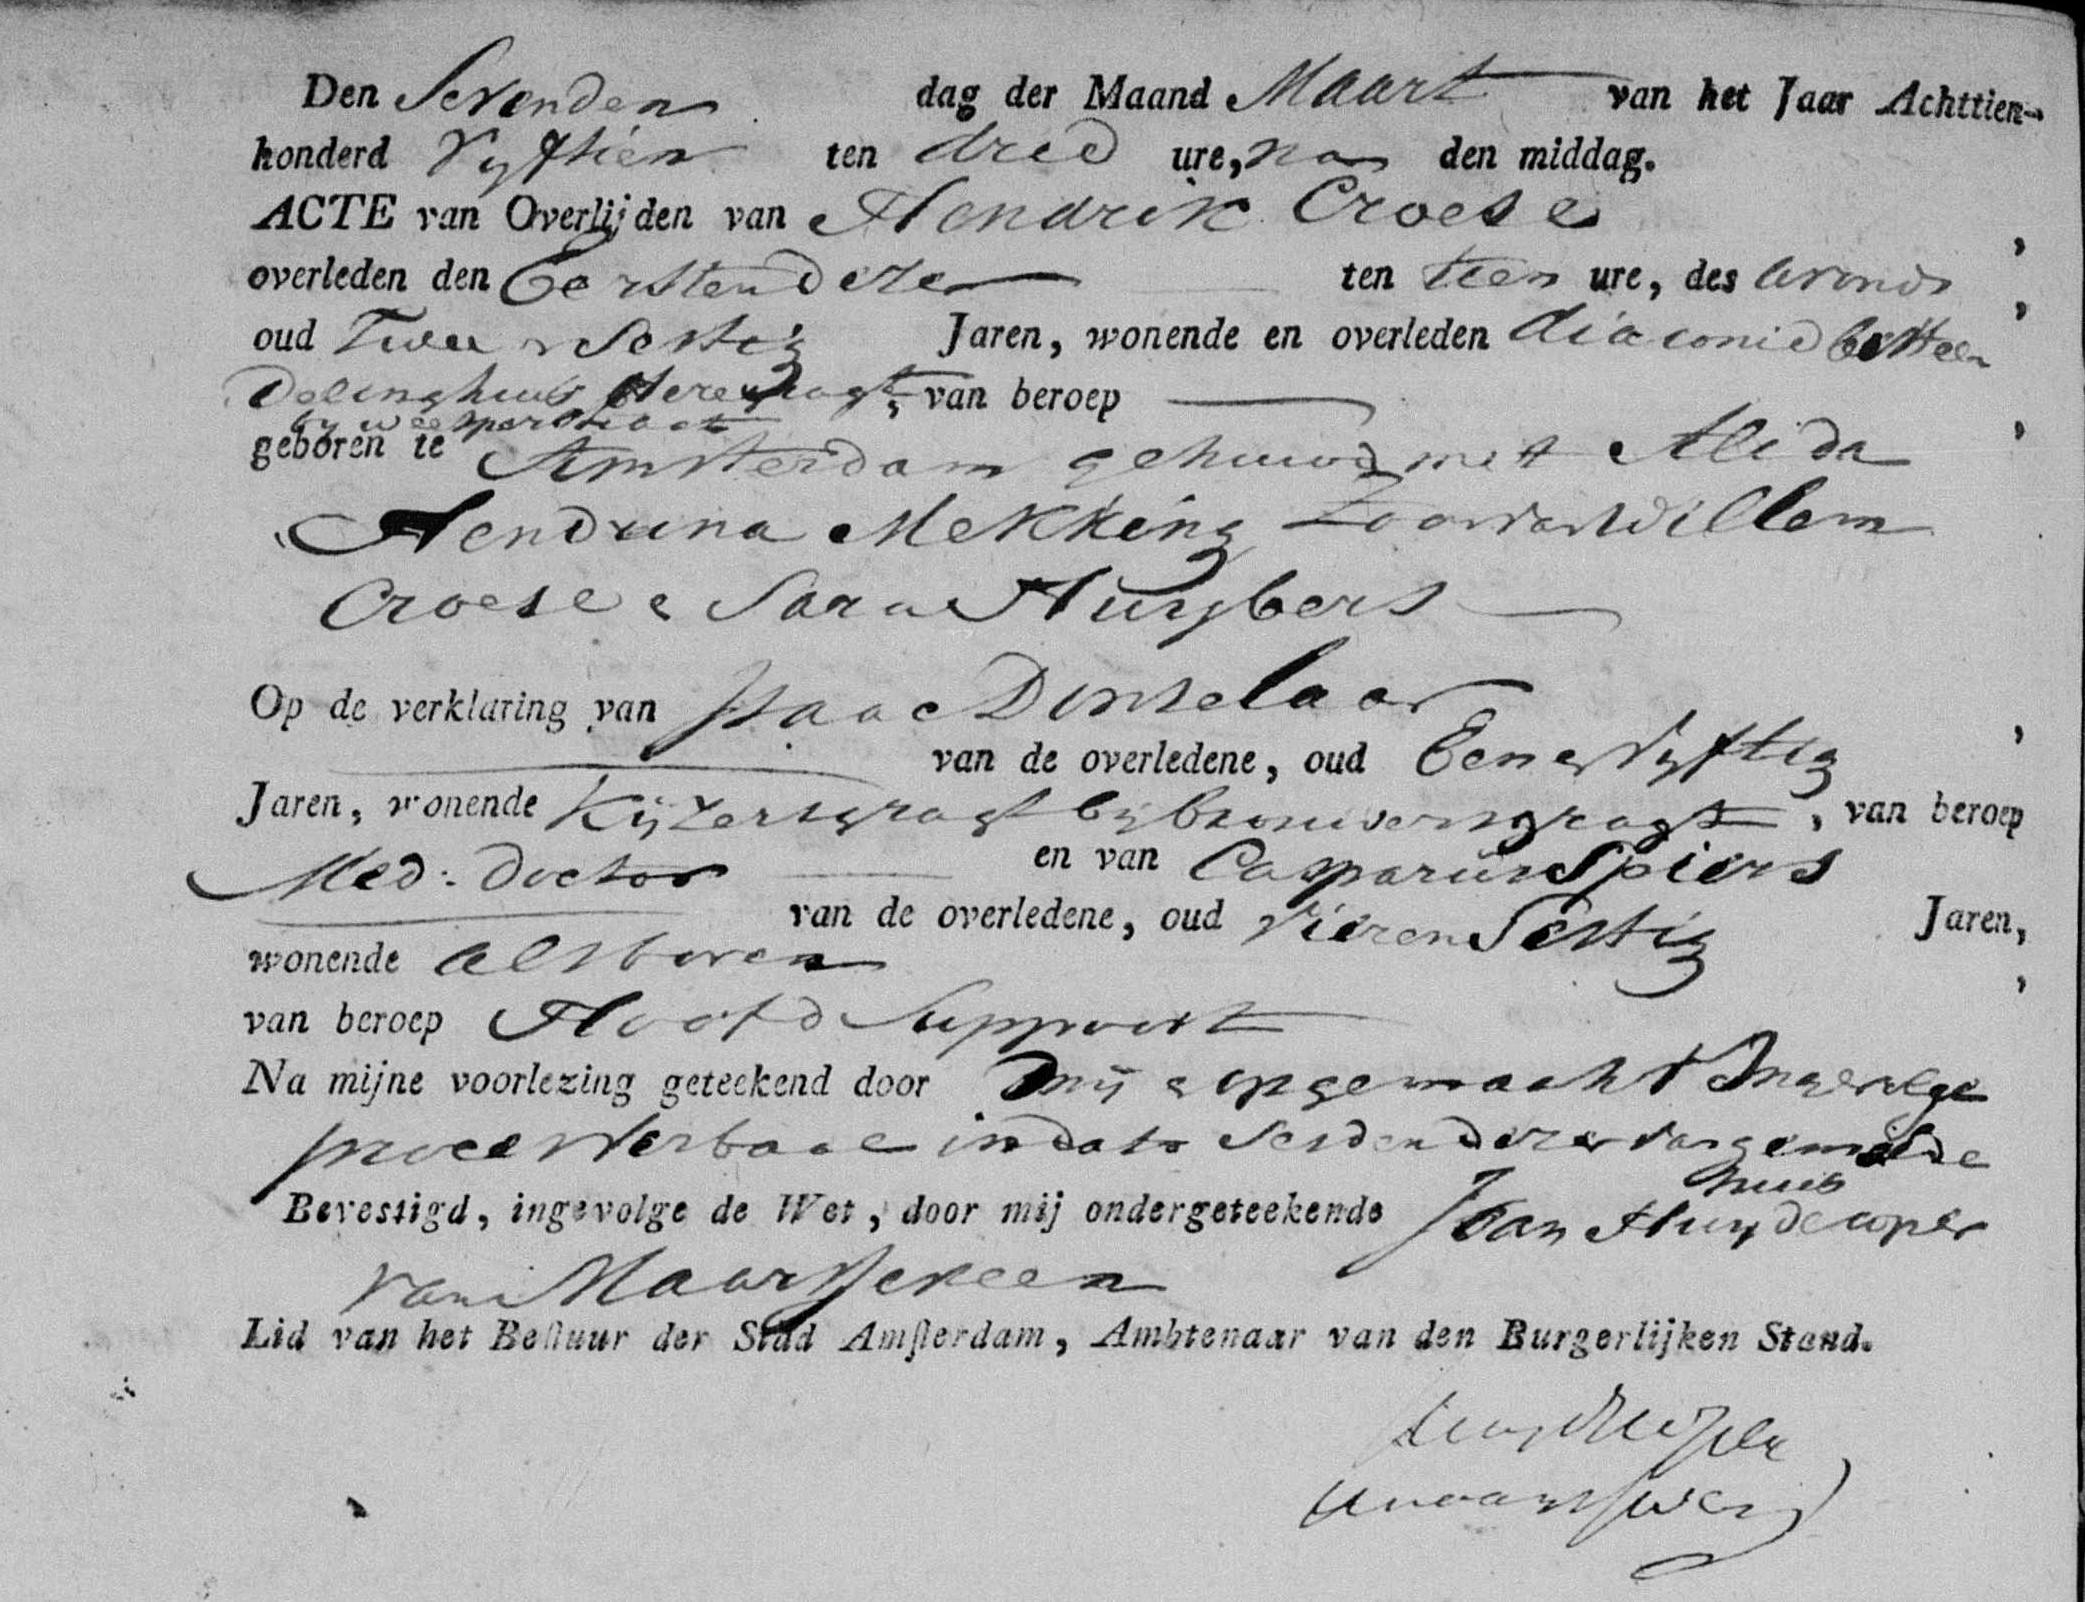 Den Sevenden dag der Maand Maart van het Jaar Achttien-
honderd Vyftien ten drie ure, na den middag.
ACTE van Overlijden van Hendrik Croese,
overleden den Eersten dezer ten tien ure, des avonds,
oud Twee en Sestig Jaren, wonende en overleden diaconie besteen
Delinghuis Herengragt, van beroep
by weesperstraat
geboren te Amsterdam gehuwd met Alida,
Hendrina Mekking Zoon van Willem
Croese & Sara Huybers
Op de verklaring van Isaac
van de overledene, oud Een en Vyftig,
Jaren, wonende Kyzersgragt by brouwersgragt, van beroep
Med: Doctor en van Casparus Spiers
van de overledene, oud Vier en Sestig Jaren,
wonende als boven,
van beroep Hoofd Suppoost
Na mijne voorlezing geteekend door mij & opgemaakt Ingevolge
proces Verbaal in dato Sesden dezer van gemelde
huis
Bevestigd, ingevolge de Wet, door mij ondergeteekende Jean Huydecoper
van Maarsseveen
Lid van het Bestuur der Stad Amsterdam, Ambtenaar van den Burgerlijken Stand.
Huydecoper